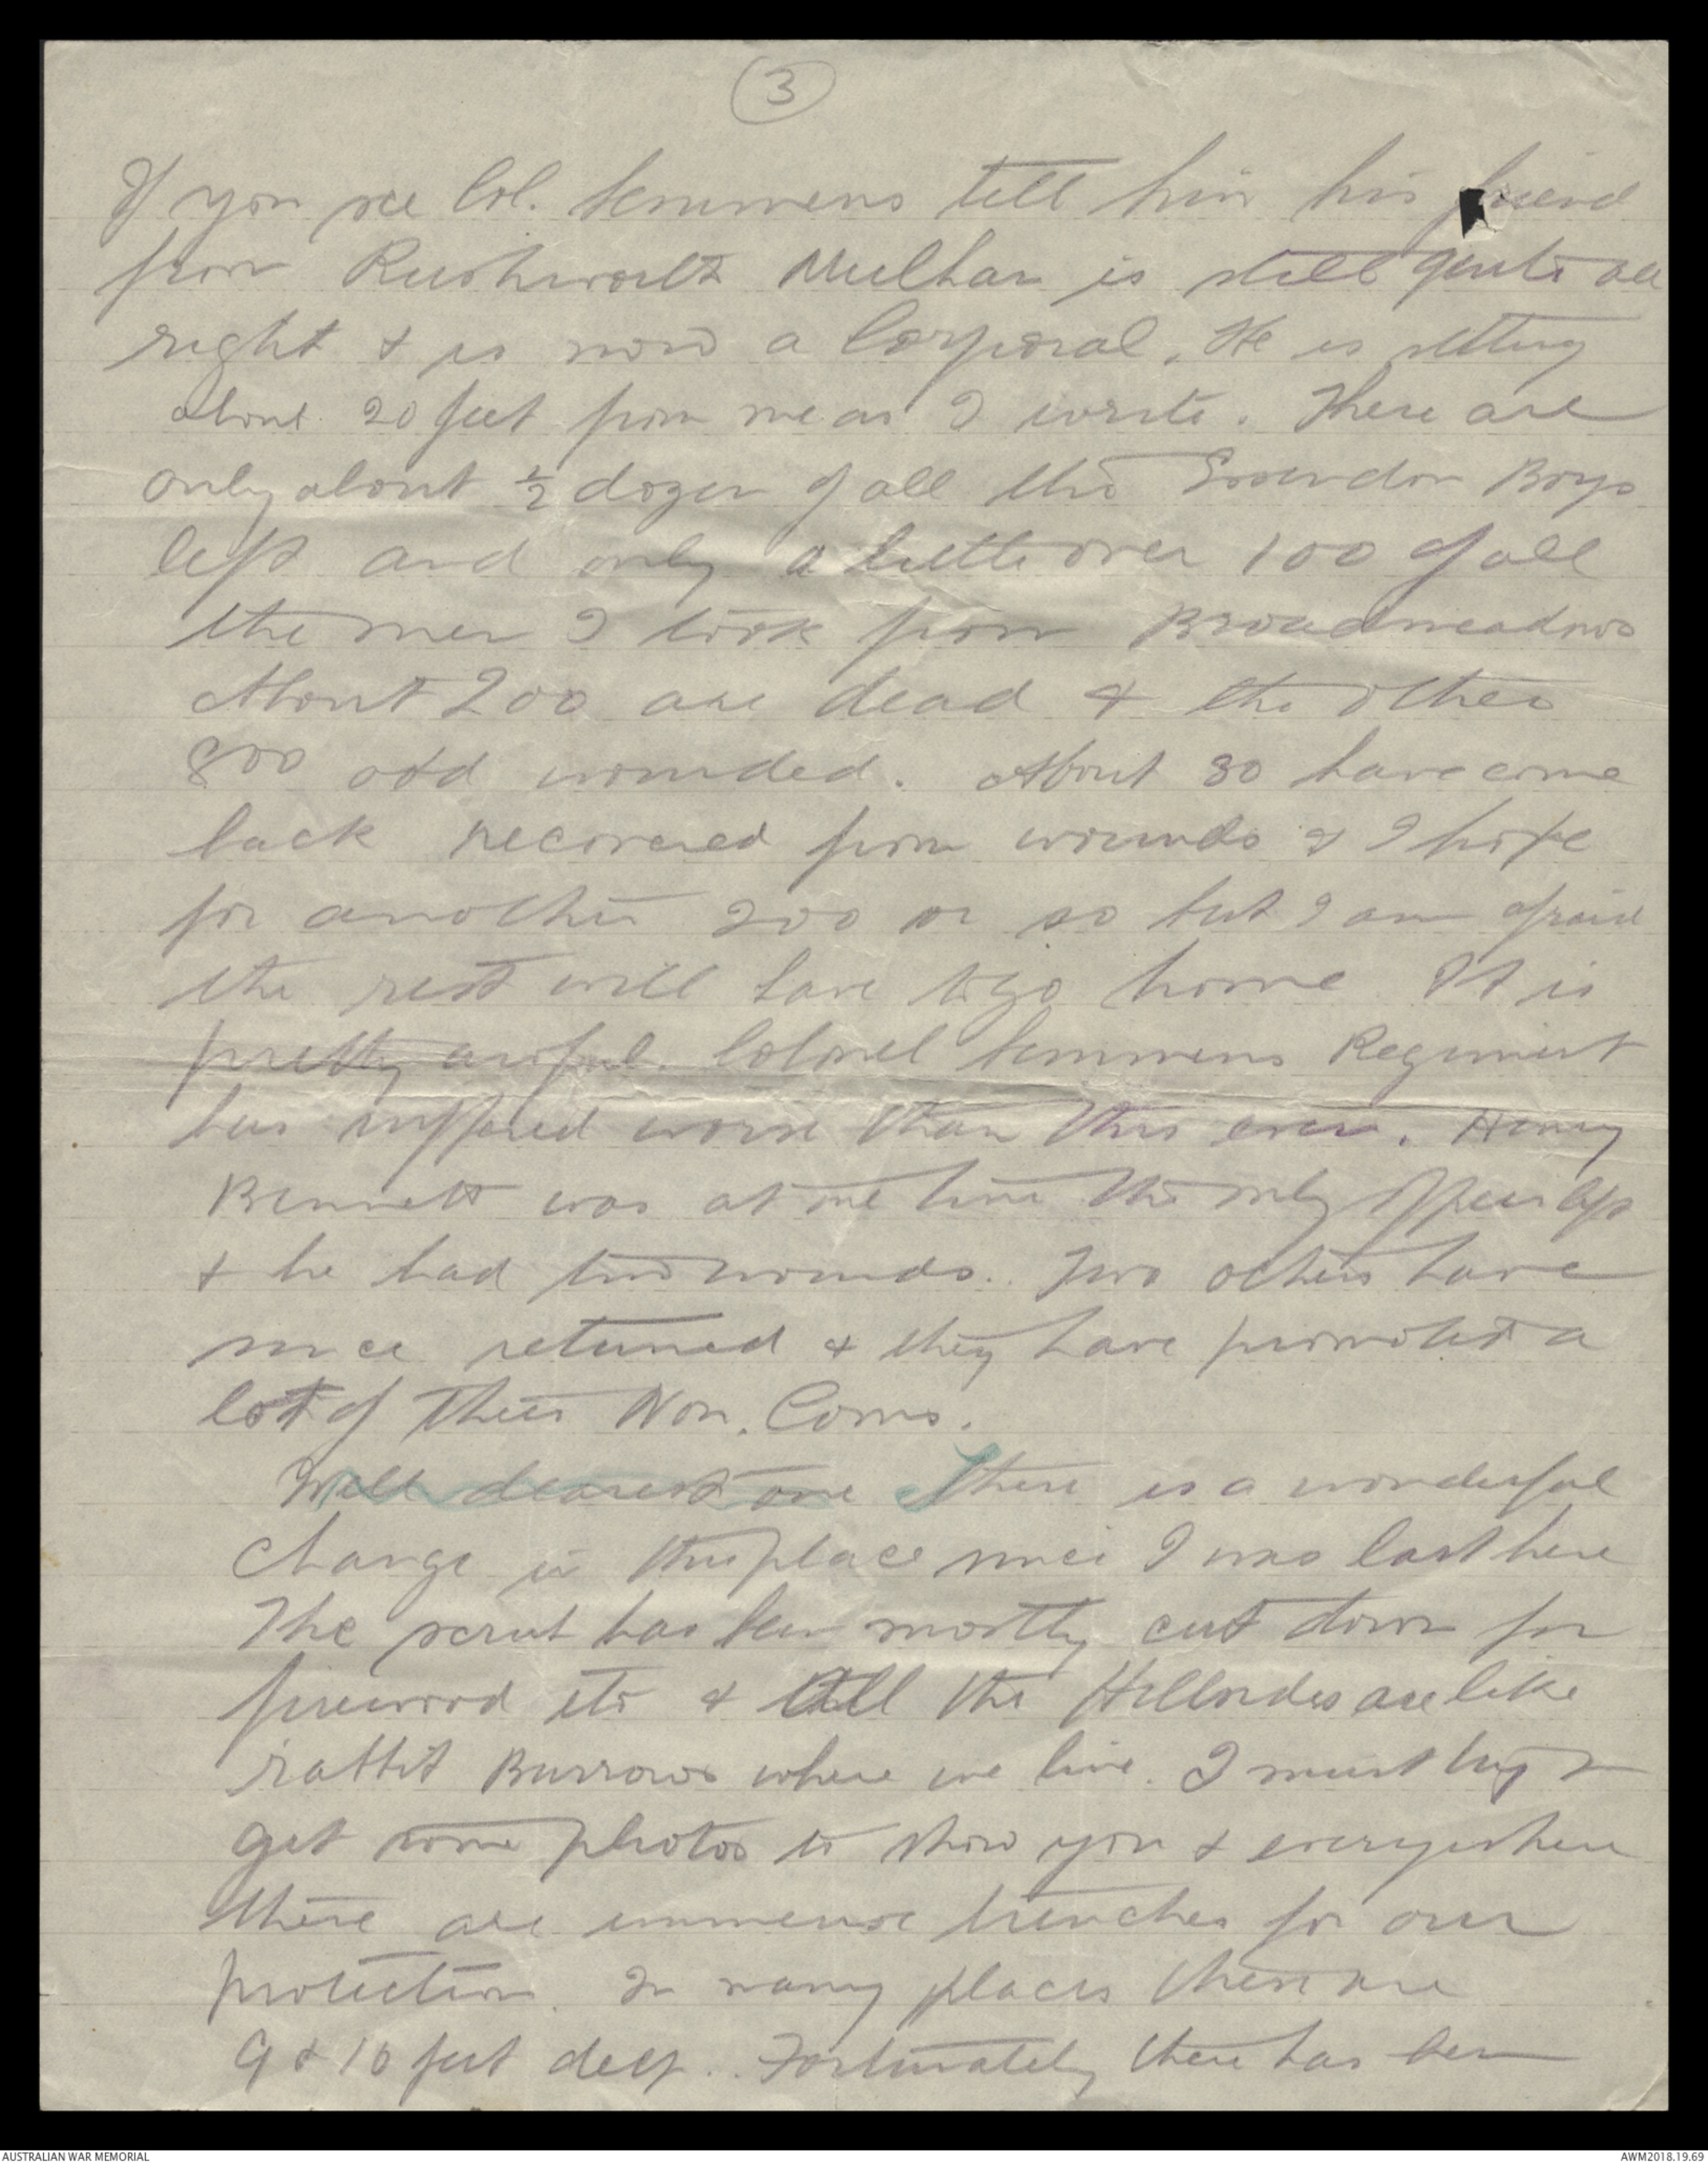 3
If you see Col. Semmens tell him his friend
from Rushworth Mulhan is still quite all
right & is now a Corporal. He is sitting
about 20 feet from me as I write. There are
only about ½ dozen of all the Essendon Boys
left and only a little over 100 of all
the men I took from Broadmeadows
About 200 are dead & the other
800 odd wounded. About 80 have come
back recovered from wounds & I hope
for another 200 or so but I am afraid
the rest will have to go home. It is
pretty awful. Colonel Semmens Regiment
has suffered worse than this even. Henry
Bennett was at one time the only Officer left
& he had two wounds. Two others have
since returned & they have promoted a
lot of their Non. Coms.
Well dearest one There is a wonderful
change in this place since I was last here
The scrub has been mostly cut down for
firewood etc & all the Hillsides are like
rabbit Burrows where we live. I must try &
get some photos to show you & everywhere
there are immense trenches for our
protection. In many places these are
9 & 10 feet deep. Fortunately there has been
AUSTRALIAN WAR MEMORIAL
AWM2018.19.69